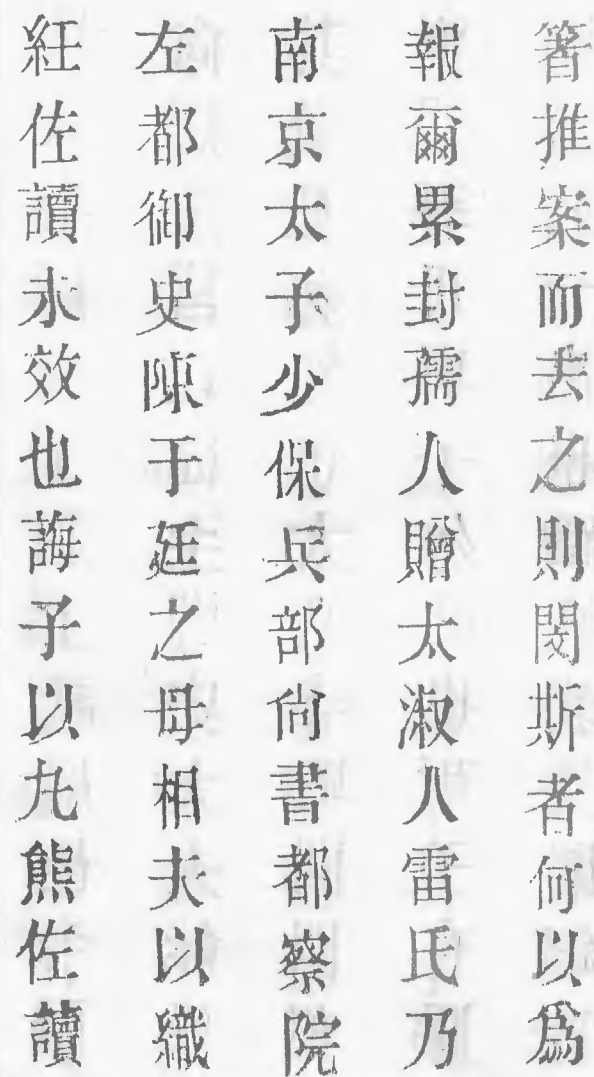 箸推案而去之則閔斯者何以爲
報爾累封孺人贈太淑人雷氏乃
南京太子少保兵部尙書都察院
左都御史陳于廷之母相夫以織
紝佐讀未效也誨子以丸熊佐讀